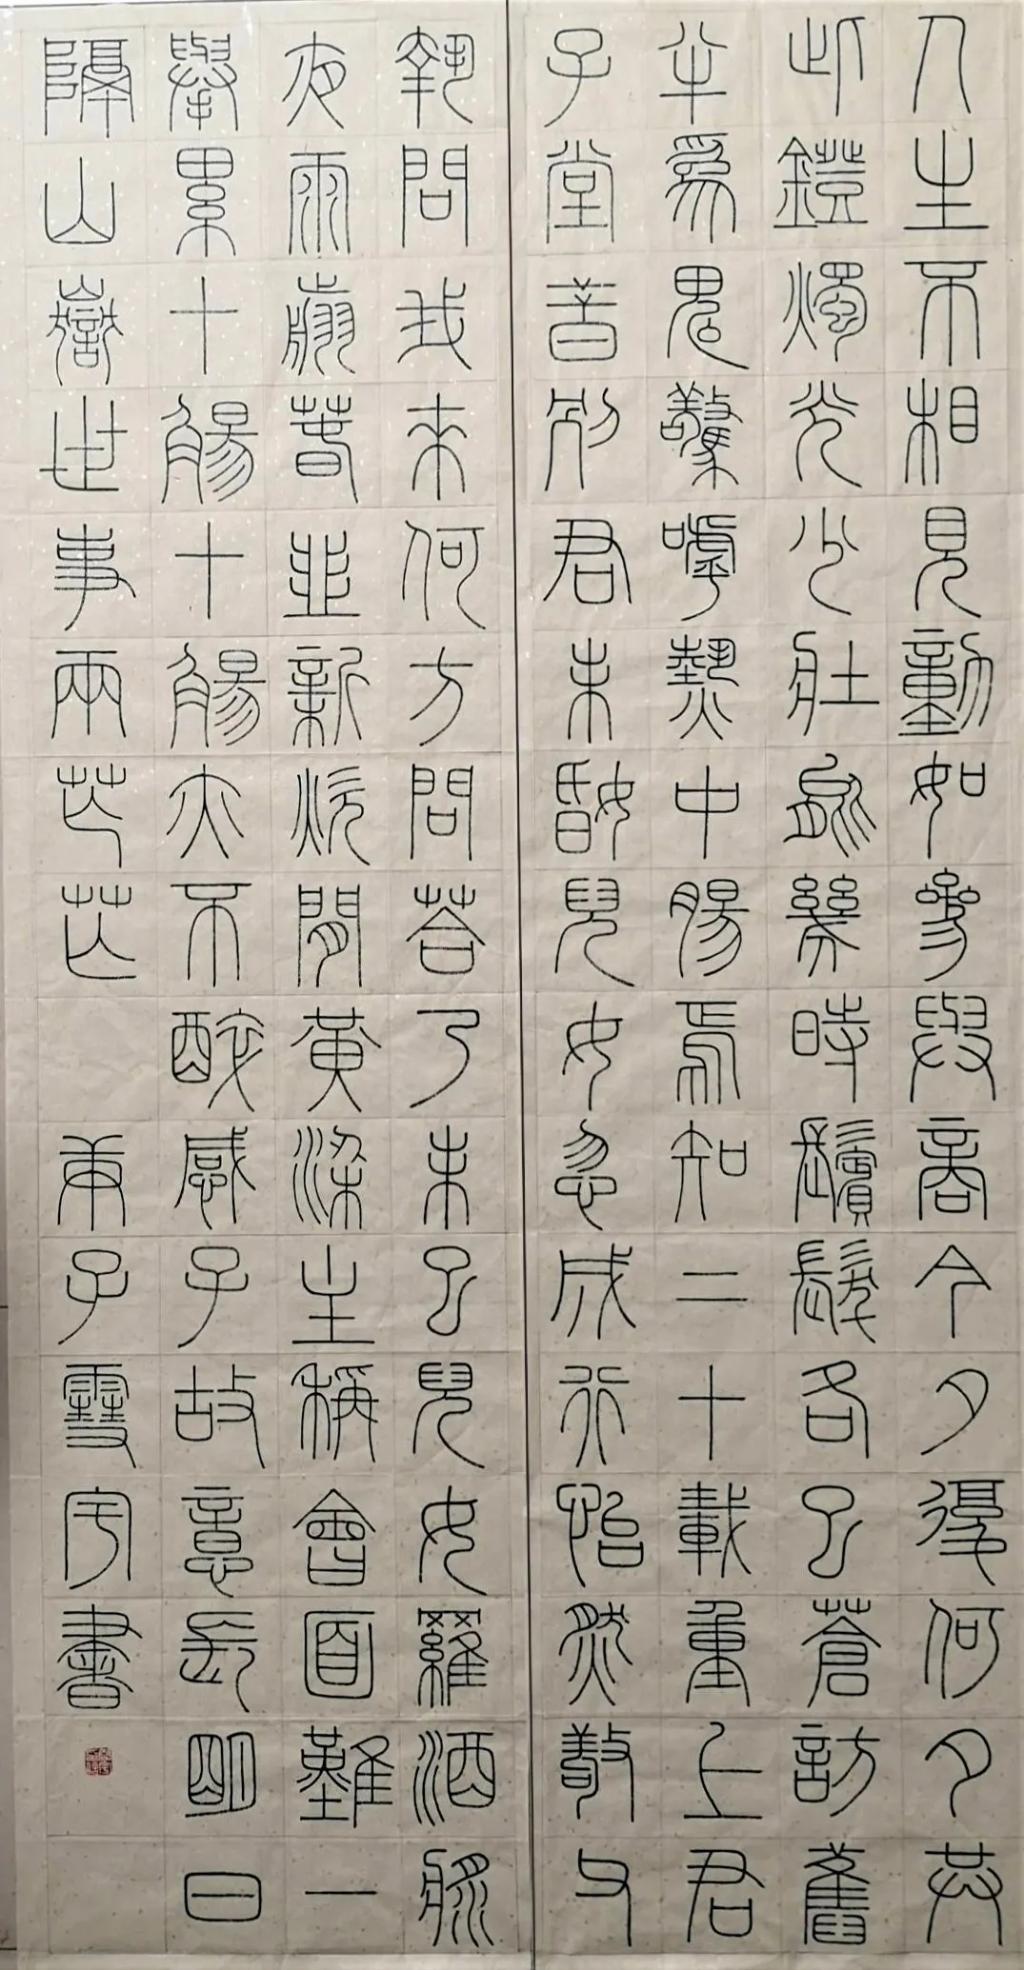 人生不相見動如參與商今夕復何夕共
此鐙燭光少壯能幾時鬢髮各已蒼訪舊
半為鬼驚嘑熱中腸焉知二十載重上君
子堂昔別君未婚兒女忽成行怡然敬父
執問我來何方問答乃未已兒女羅酒漿
夜雨翦春韭新炊間黃粱主稱會面難一
舉累十觴十觴亦不醉感子故意長明日
隔山嶽世事兩茫茫 庚子雪宇書